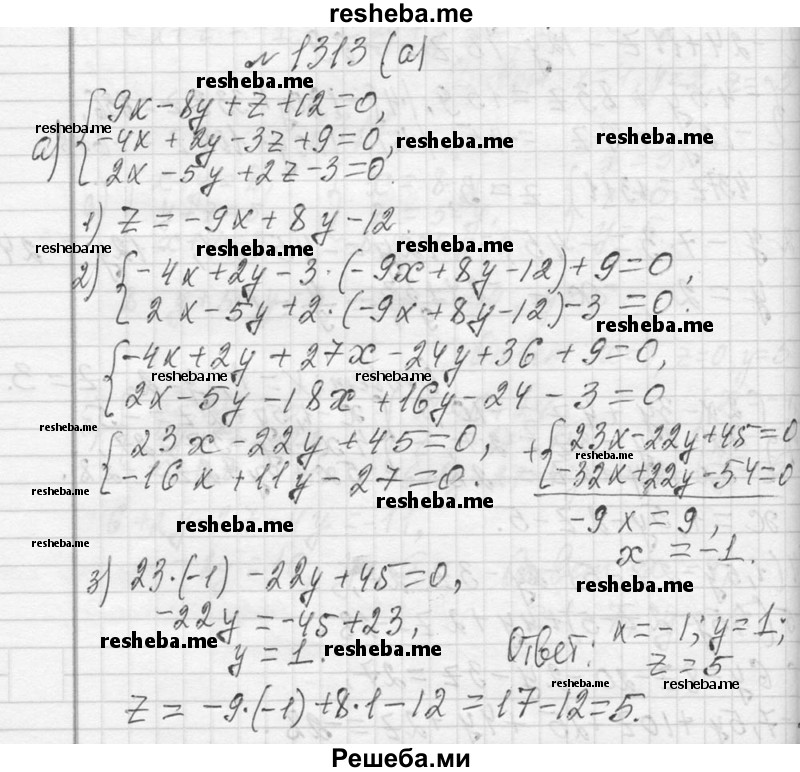 resheba.me
№ 1313 (а)
resheba.me
9x - 8y + z + 12 = 0,
resheba.me
а) -4x + 2y - 3z + 9 = 0,
resheba.me
resheba.me
2x - 5y + 2z - 3 = 0.
1) z = -9x + 8y - 12.
resheba.me
resheba.me
resheba.me
2) -4x + 2y - 3·(-9x + 8y - 12) + 9 = 0,
2x - 5y + 2·(-9x + 8y - 12) - 3 = 0.
resheba.me
-4x + 2y + 27x - 24y + 36 + 9 = 0,
resheba.me
resheba.me
2x - 5y - 18x + 16y - 24 - 3 = 0
resheba.me
23x - 22y + 45 = 0,
+ 23x - 22y + 45 = 0
resheba.me
-16x + 11y - 27 = 0.
-32x + 22y - 54 = 0
resheba.me
resheba.me
resheba.me
-9x = 9,
resheba.me
x = -1.
3) 23·(-1) - 22y + 45 = 0,
resheba.me
-22y = -45 + 23,
resheba.me
y = 1.
resheba.me
Ответ: x = -1; y = 1;
z = 5
resheba.me
resheba.me
z = -9·(-1) + 8·1 - 12 = 17 - 12 = 5.
Решеба.ми